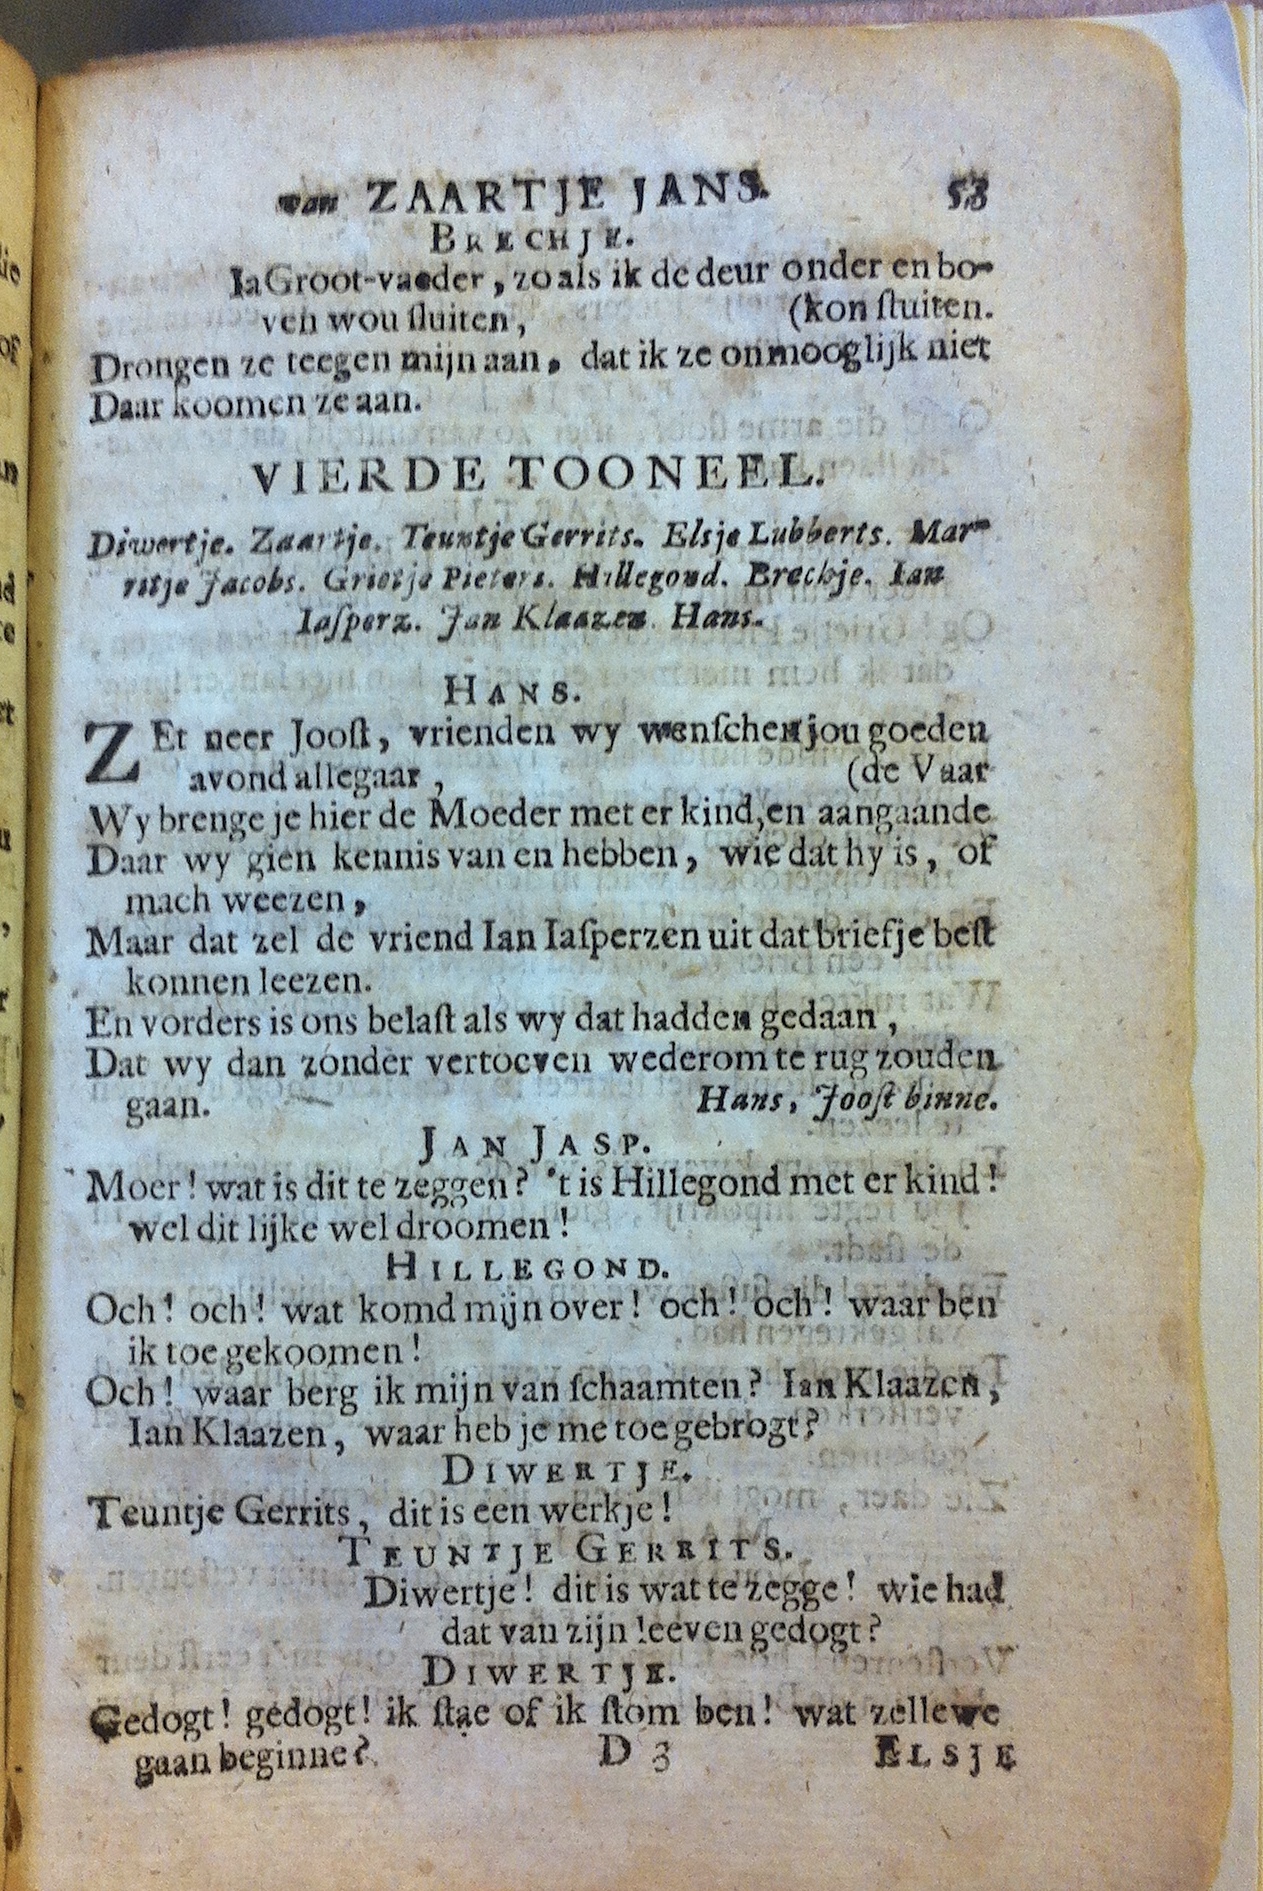 van ZAARTJE JANS. 53
BRECHJE.
Ia Groot-vaeder, zo als ik de deur onder en bo-
ven wou sluiten, (kon sluiten.
Drongen ze teegen mijn aan, dat ik ze onmooglijk niet
Daar koomen ze aan.
VIERDE TOONEEL.
Diwertje. Zaartje. Teuntje Gerrits. Elsje Lubberts. Mar-
ritje Jacobs. Grietje Pieters. Hillegond. Brechje. Ian
Iaſperz. Jan Klaazen. Hans.
HANS.
ZEt neer Jooſt, vrienden wy wenſchen jou goeden
avond allegaar, (de Vaar
Wy brenge je hier de Moeder met er kind, en aangaande
Daar wy gien kennis van en hebben, wie dat hy is, of
mach weezen,
Maar dat zel de vriend Ian Iaſperzen uit dat briefje beſt
konnen leezen.
En vorders is ons belaſt als wy dat hadden gedaan,
Dat wy dan zonder vertoeven wederom te rug zouden
gaan. Hans, Jooſt binne.
JAN JASP.
Moer! wat is dit te zeggen? 't is Hillegond met er kind!
wel dit lijke wel droomen!
HILLEGOND.
Och! och! wat komd mijn over! och! och! waar ben
ik toe gekoomen!
Och! waar berg ik mijn van ſchaamten? Ian Klaazen,
Ian Klaazen, waar heb je me toe gebrogt?
DIWERTJE.
Teuntje Gerrits, dit is een werkje!
TEUNTJE GERRITS.
Diwertje! dit is wat te zegge! wie had
dat van zijn leeven gedogt?
DIWERTJE.
Gedogt! gedogt! ik ſtae of ik ſtom ben! wat zellewe
gaan beginne?
D 3 ELSJE